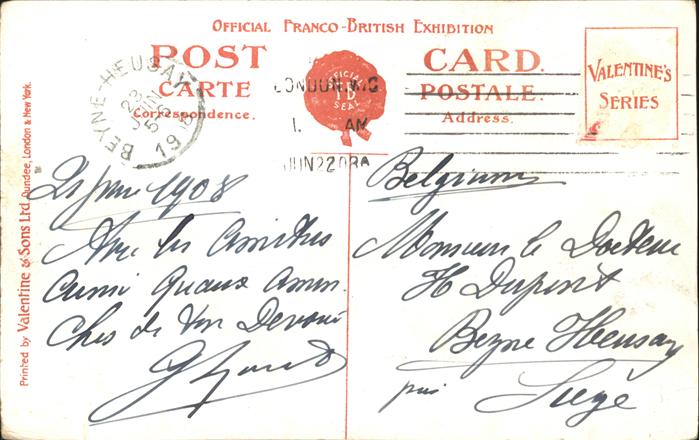 OFFICIAL FRANCO-BRITISH EXHIBITION
POST CARD.
CARTE POSTALE.
Correspondence. Address.
OFFICIAL
SEAL
VALENTINE'S
SERIES
BEYNE-HEUSAY
23
JUIN
19
LONDON W.C
1. AM
JUN 22 08A
Printed by Valentine & Sons Ltd Dundee, London & New York.
21 juin 1908
Avec les Amitiés
aussi
de Von Dévoué
Belgium
Monsieur le Docteur
H Dupont
Beyne Heusay
Liège